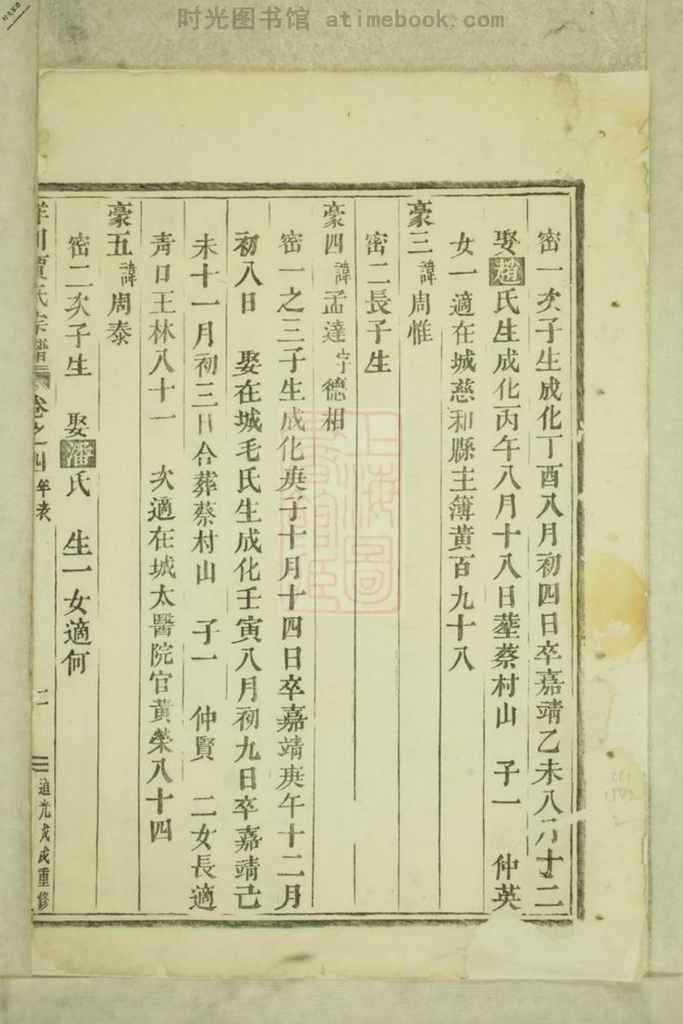 时光图书馆 atimebook.com
密一次子生成化丁酉八月初四日卒嘉靖乙未八月十二
娶趙氏生成化丙午八月十八日塟蔡村山 子一 仲英
女一適在城慈和縣主簿黃百九十八
豪三諱周惟
密二長子生
豪四諱孟達字德相
密一之三子生成化庚子十月十四日卒嘉靖庚午十二月
初八日 娶在城毛氏生成化壬寅八月初九日卒嘉靖己
未十一月初三日合葬蔡村山 子一 仲賢 二女長適
靑口王林八十一 次適在城太醫院官黃榮八十四
豪五諱周泰
密二次子生 娶潘氏 生一女適何
川賈氏宗譜 卷之四年表 二 道光戊戌重修